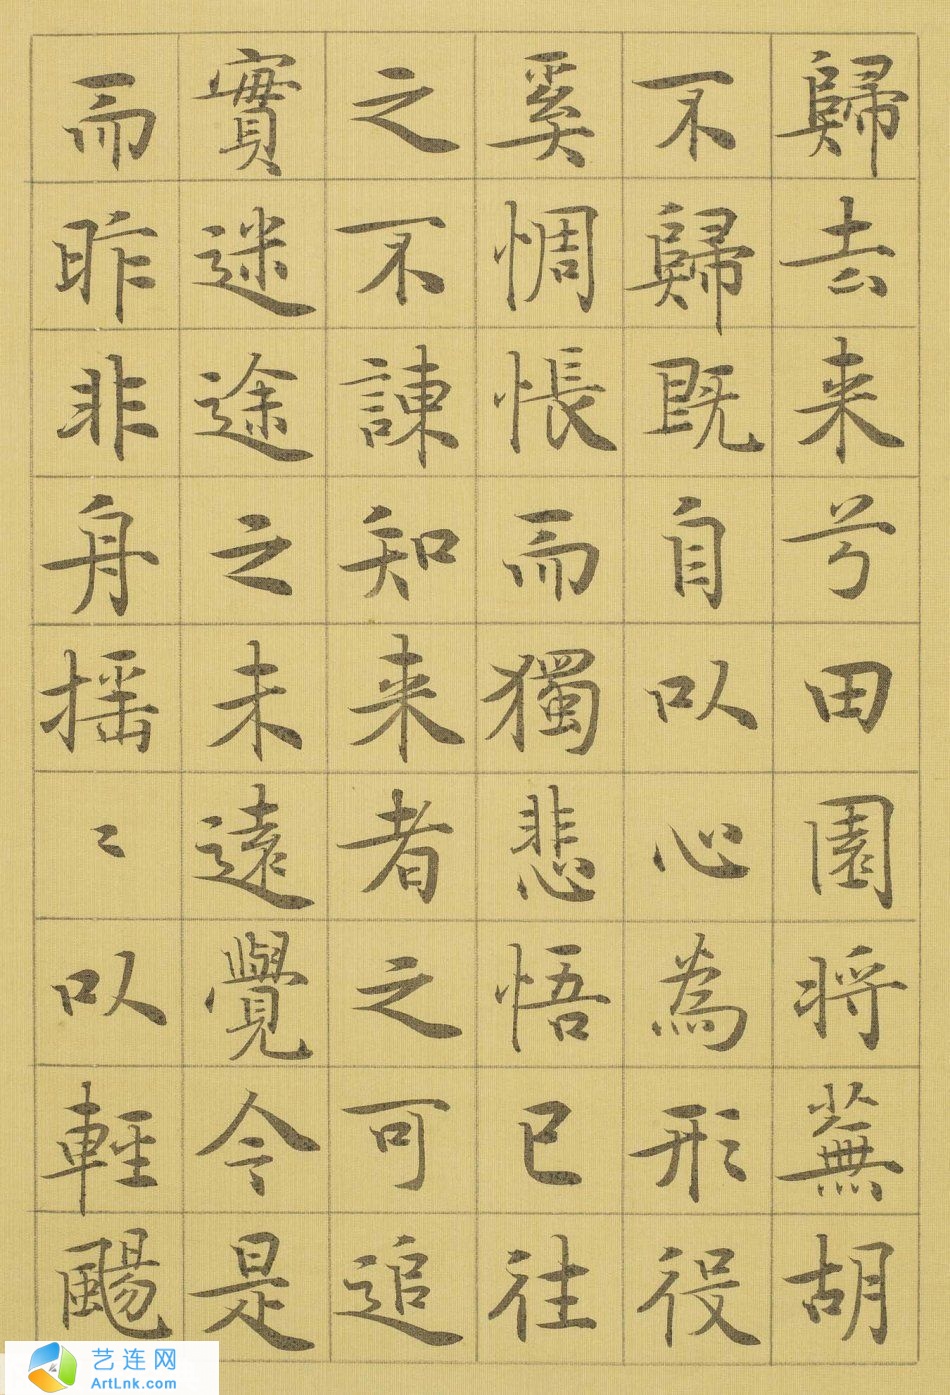 歸去来兮田園将蕪胡
不歸既自以心為形役
奚惆悵而獨悲悟已往
之不諫知来者之可追
實迷途之未遠覺今是
而昨非舟摇〻以輕颺
艺连网
ArtLnk.com